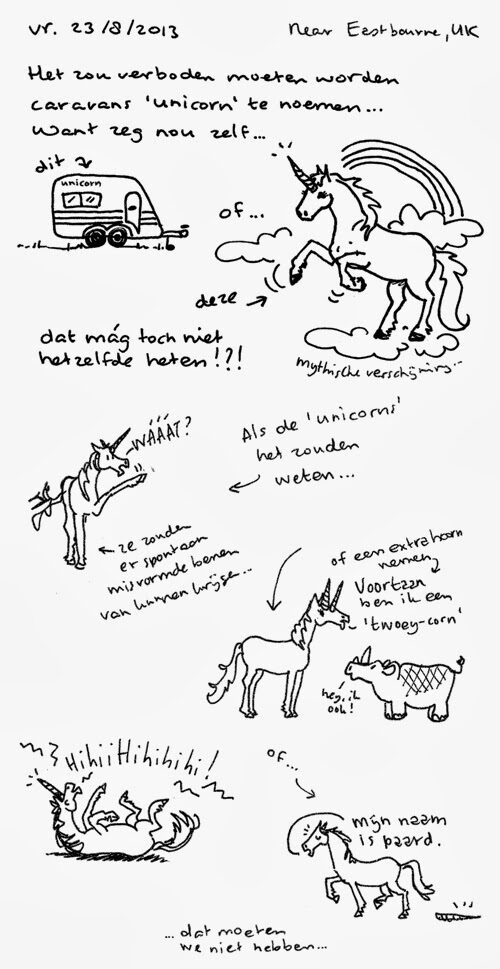 vr. 23/8/2013
Near Eastbourne, UK
Het zou verboden moeten worden
caravans 'unicorn' te noemen...
Want zeg nou zelf...
dit
unicorn
of...
deze
dat mág toch niet
hetzelfde heten!?!
mythische verschijning..
WÁÁÁT?
Als de 'unicorns'
het zouden
weten...
ze zouden
er spontaan
misvormde benen
van kunnen krijgen...
of een extra hoorn
nemen,
Voortaan
ben ik een
'twoey-corn'
hey, ik
ook!
HihiiHihihihi!
of...
mijn naam
is paard.
...dat moeten
we niet hebben...